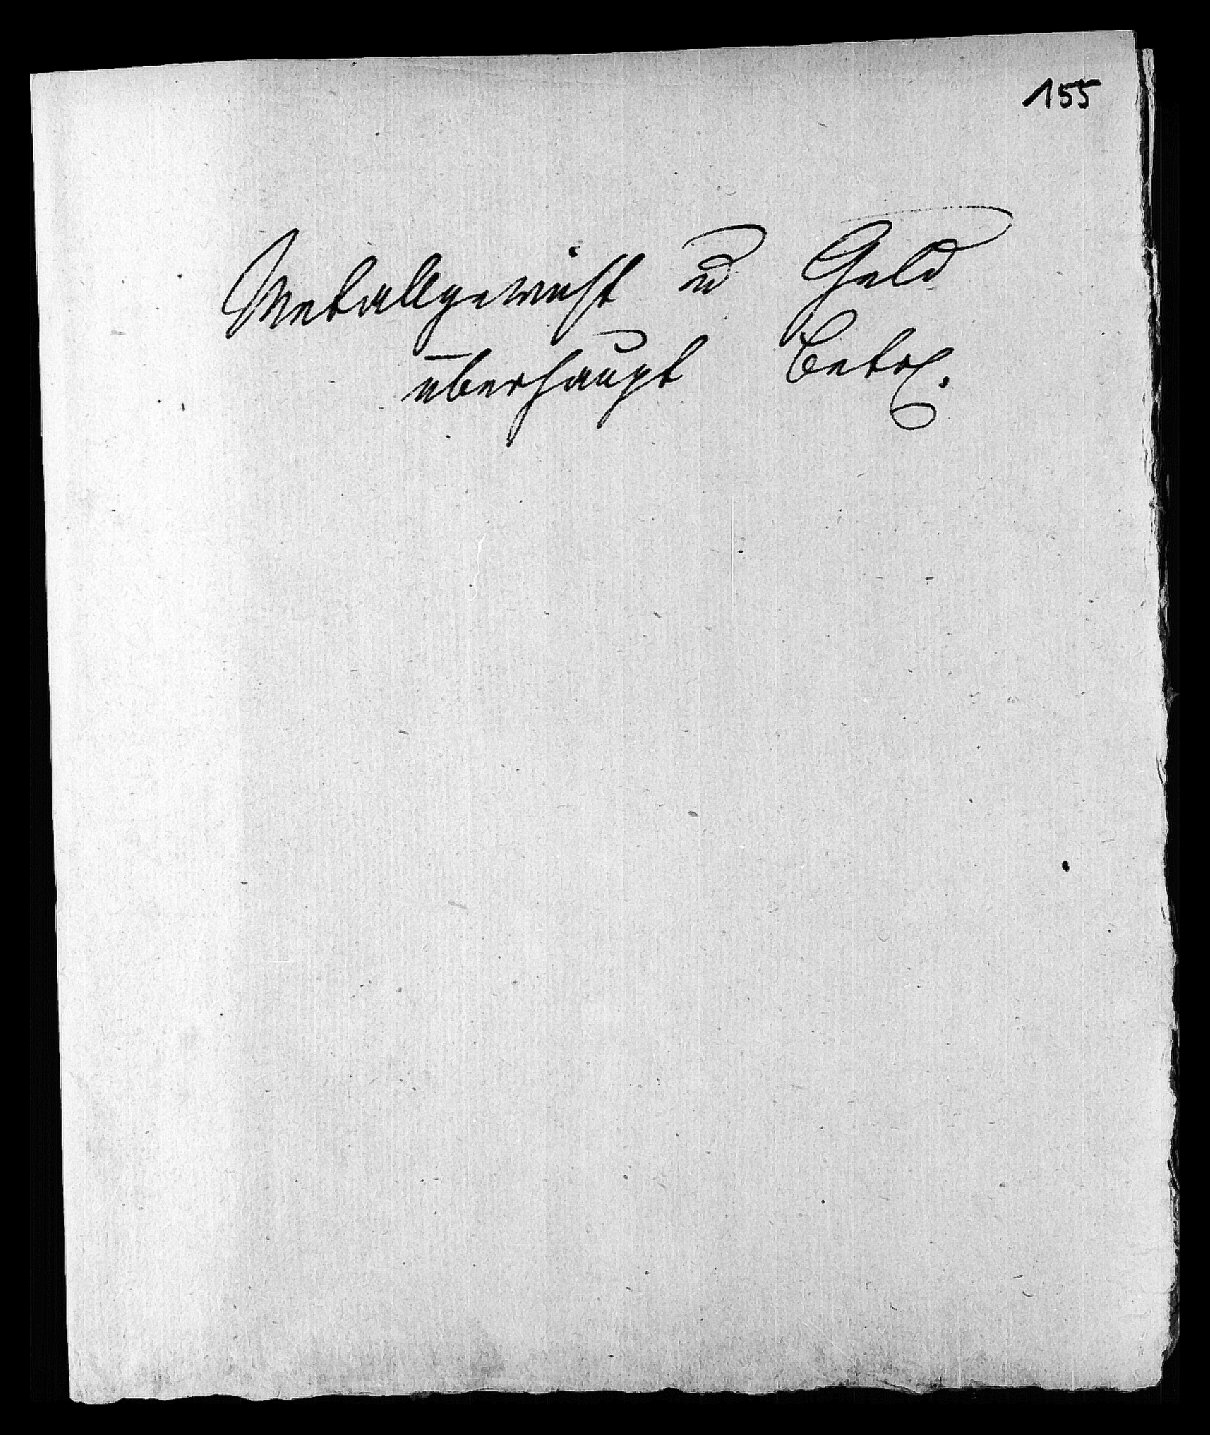 155
Metallgewicht u Geld
überhaupt betr.